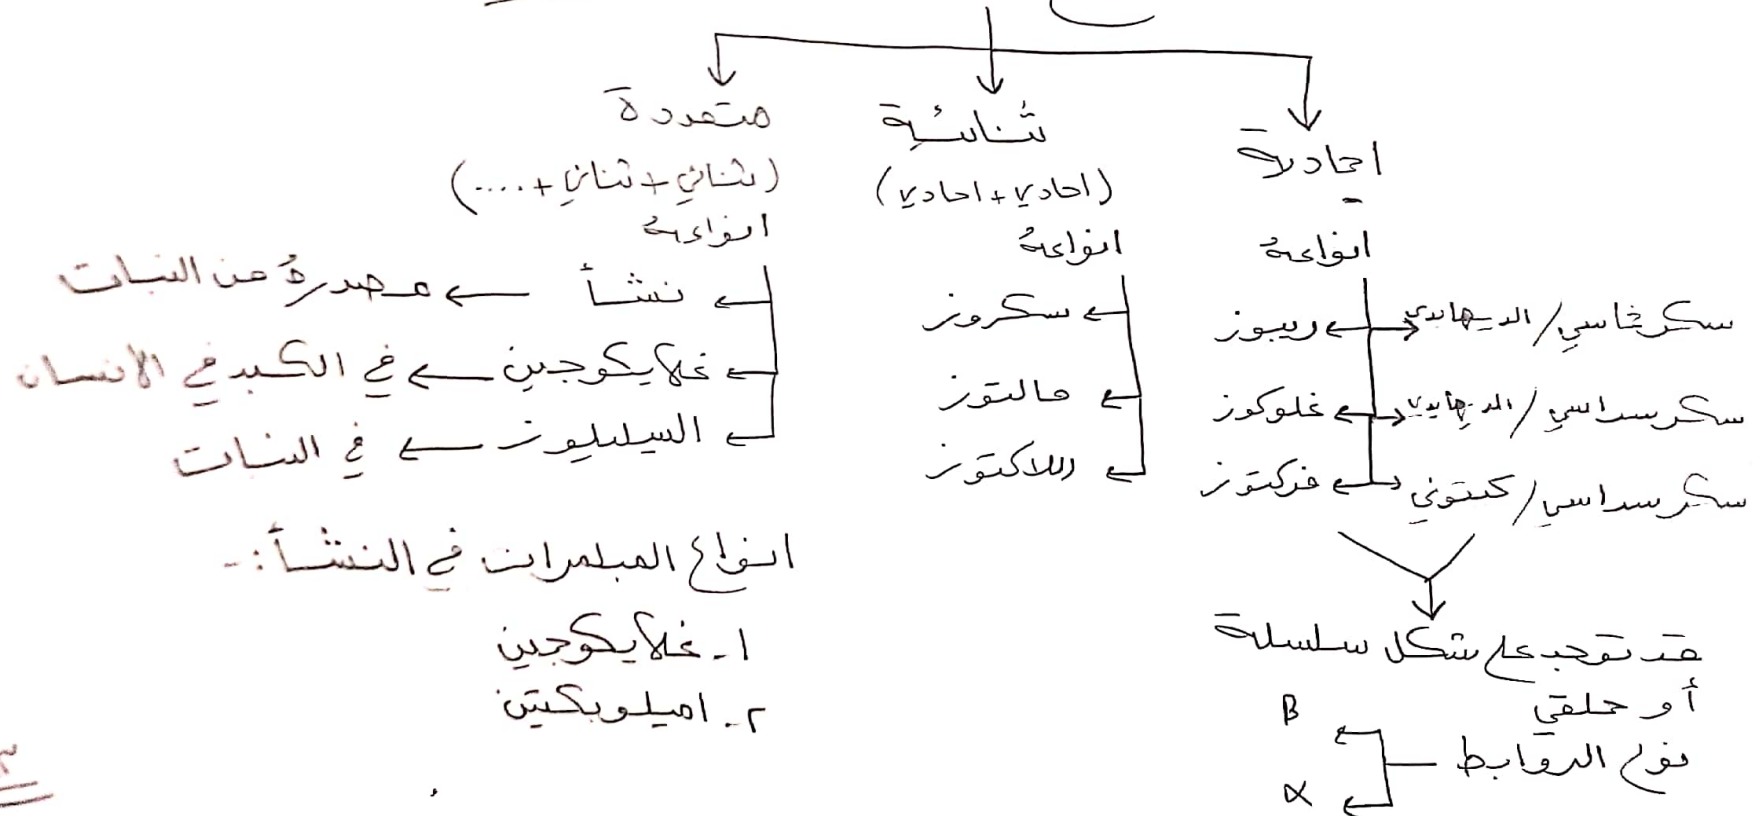 احادية
انواعهُ
ريبوز
سكر خماسي / الديهايدي
غلوكوز
سكر سداسي / الديهايدي
فركتوز
سكر سداسي / كيتوني
قد توجد على شكل سلسلة
أو حلقي
نوع الروابط
β
α
ثُنائية
(احادي + احادي)
انواعهُ
سكروز
مالتوز
اللاكتوز
متعددة
(ثنائي + ثنائي + ....)
انواعهُ
نشأ ← مصدرهُ من النبات
غلايكوجين ← في الكبد في الانسان
السيليلوز ← في النبات
انواع المبلمرات في النشأ :-
١- غلايكوجين
٢- اميلوبكتين
٣